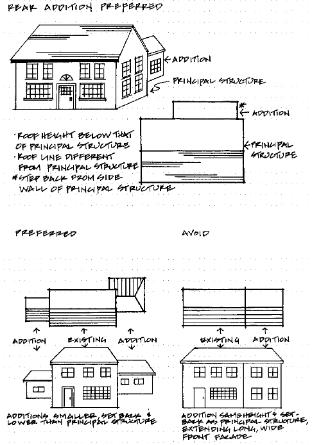 REAR ADDITION PREFERRED
ADDITION
PRINCIPAL STRUCTURE
*
ADDITION
PRINCIPAL
STRUCTURE
· ROOF HEIGHT BELOW THAT
OF PRINCIPAL STRUCTURE
· ROOF LINE DIFFERENT
FROM PRINCIPAL STRUCTURE
* STEP BACK FROM SIDE
WALL OF PRINCIPAL STRUCTURE
PREFERRED
AVOID
ADDITION EXISTING ADDITION
EXISTING ADDITION
ADDITIONS SMALLER, SET BACK &
LOWER THAN PRINCIPAL STRUCTURE
ADDITION SAME HEIGHT & SET-
BACK AS PRINCIPAL STRUCTURE,
EXTENDING LONG, WIDE
FRONT FACADE